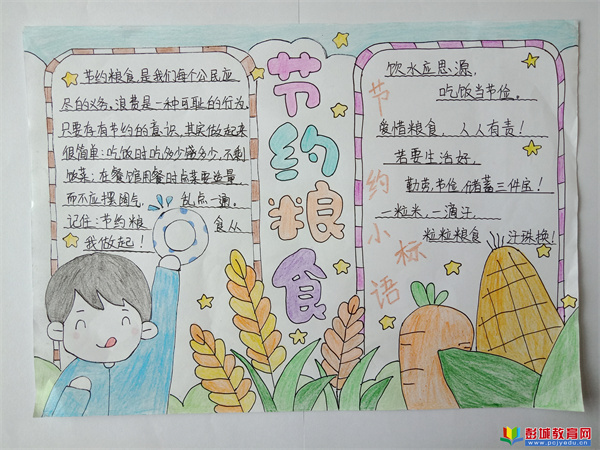 节约粮食是我们每个公民应
尽的义务,浪费是一种可耻的行为,
只要存有节约的意识,其实做起来
很简单:吃饭时吃多少盛多少,不剩
饭菜;在餐馆用餐时点菜要适量,
而不应摆阔气,乱点一通。
记住:节约粮食从
我做起!
节约粮食
节约小标语
饮水应思源,
吃饭当节俭。
爱惜粮食,人人有责!
若要生活好,
勤劳、节俭、储蓄三件宝!
一粒米,一滴汗,
粒粒粮食汗珠换!
彭城教育网
www.pcjyedu.cn